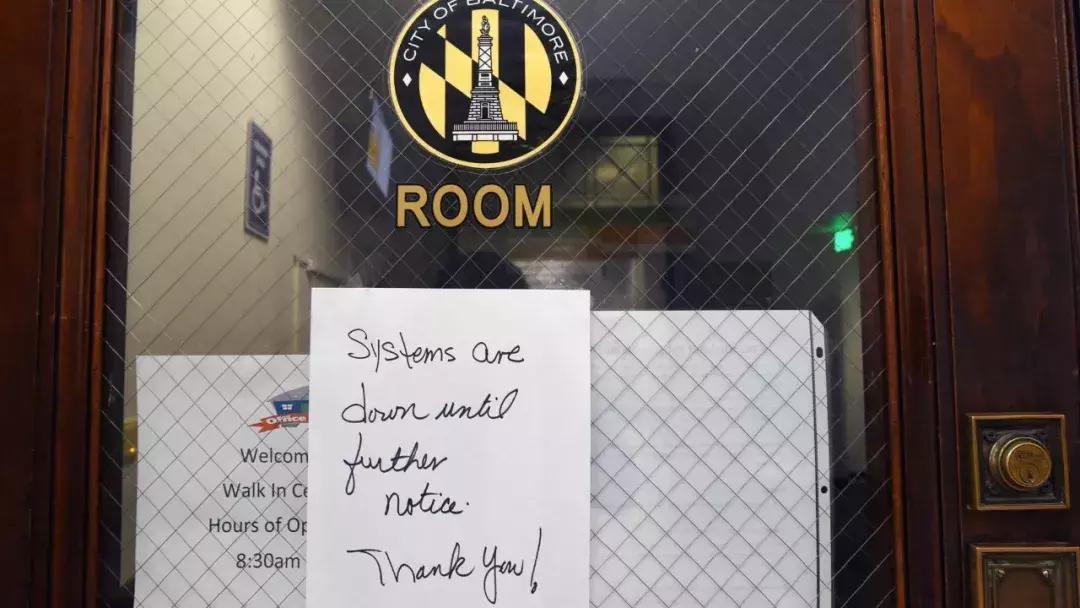 CITY OF BALTIMORE
ROOM
Systems are
down until
further
notice.
Thank You!
Office
Welcom
Walk In Ce
Hours of Op
8:30am